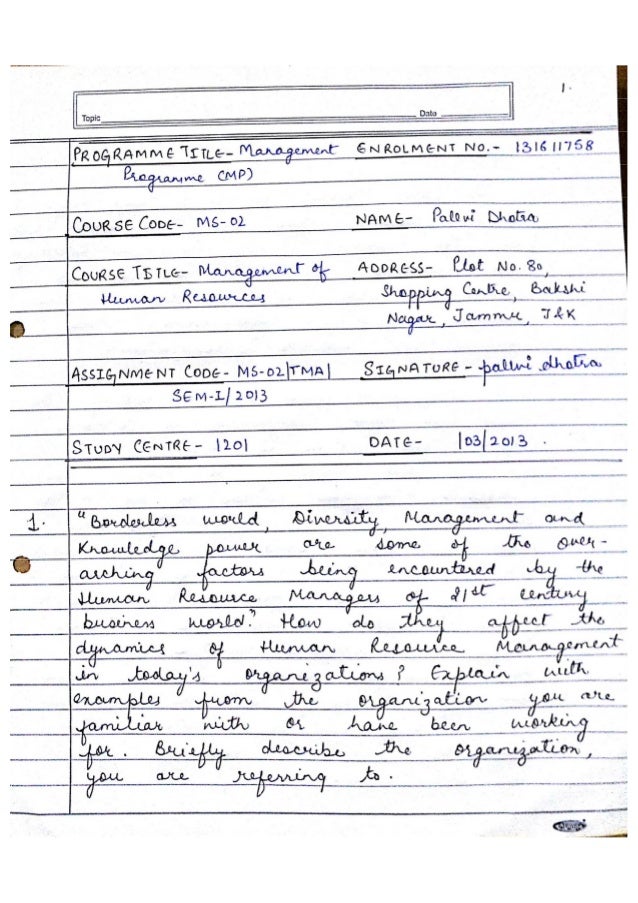 1.
Topic Date
PROGRAMME TITLE- Management ENROLMENT NO.- 131611758
Programme (MP)
COURSE CODE- MS-02 NAME- Pallvi Dhotra
COURSE TITLE- Management of ADDRESS- Plot No. 80,
Human Resources Shopping Centre, Bakshi
Nagar, Jammu, J&K
ASSIGNMENT CODE- MS-02/TMA/ SIGNATURE - pallvi dhotra
SEM-I/2013
STUDY CENTRE- 1201 DATE- /03/2013.
1. "Borderless world, Diversity, Management and
Knowledge power are some of the over-
arching factors being encountered by the
Human Resource Managers of 21st century
business world." How do they affect the
dynamics of Human Resource Management
in today's organizations? Explain with
examples from the organization you are
familiar with or have been working
for. Briefly describe the organization,
you are referring to.